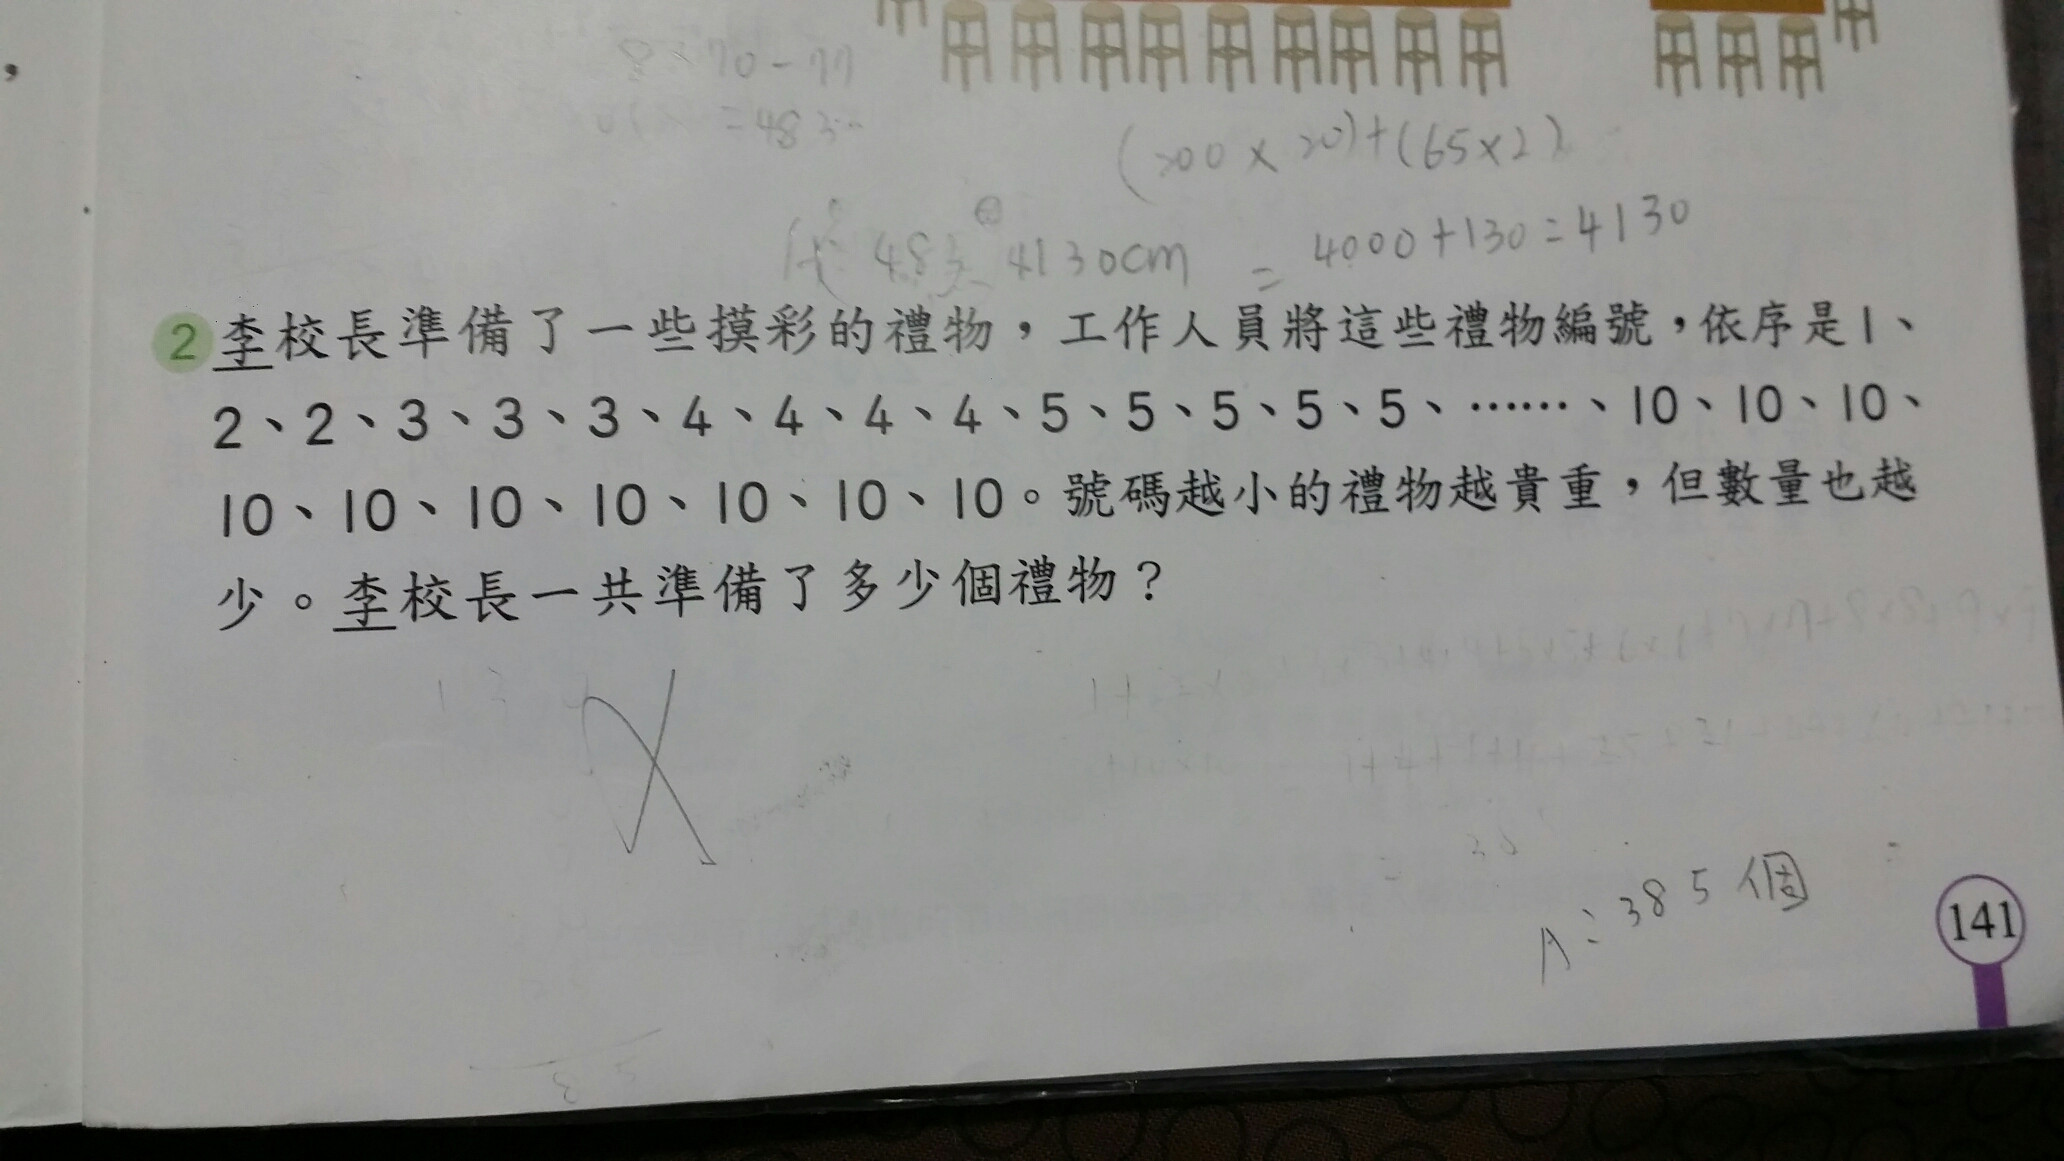 ，
8×70-77
=483
(200×20)+(65×2)
4130cm = 4000+130=4130
2 李校長準備了一些摸彩的禮物，工作人員將這些禮物編號，依序是1、
2、2、3、3、3、4、4、4、4、5、5、5、5、5、……、10、10、10、
10、10、10、10、10、10、10。號碼越小的禮物越貴重，但數量也越
少。李校長一共準備了多少個禮物？
A:385個
141